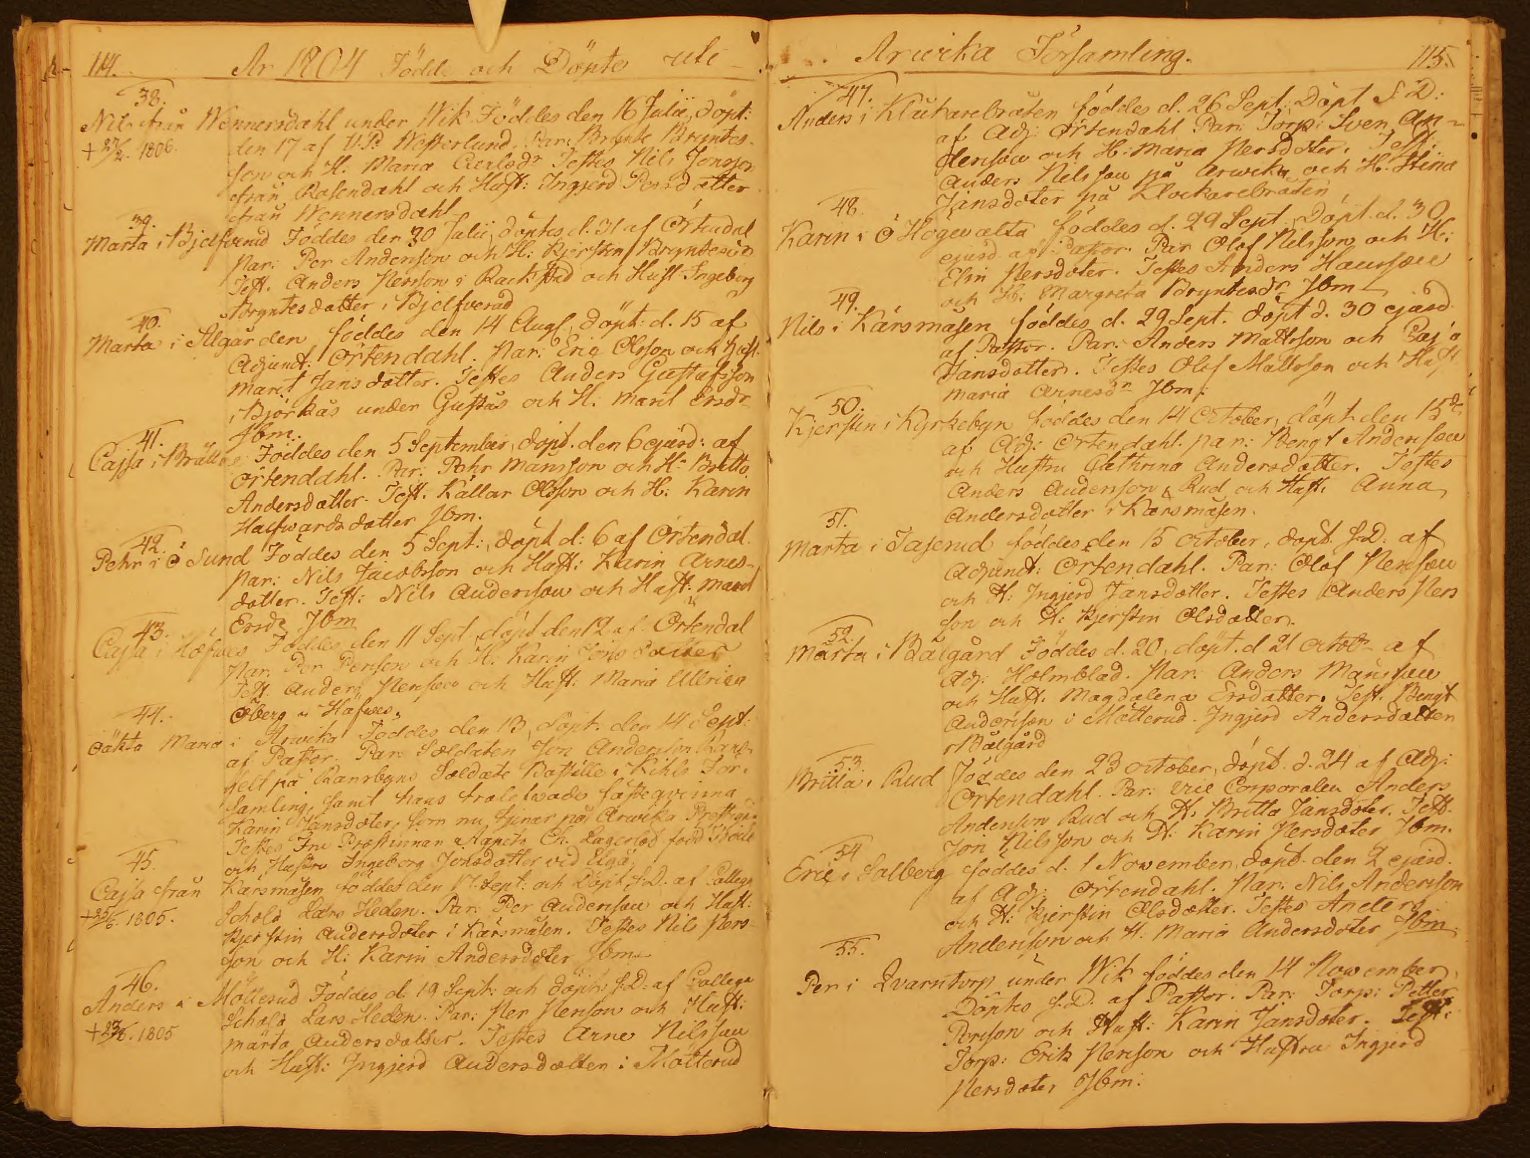 114. År 1804 Födde och Döpte uti
38.
Nils från Wennersdahl under Wik Föddes den 16 Julii, döpt:
+ 27/2. 1806. den 17 af V.P. Westerlund. Par: Brynte Bryntes-
son och H. Maria Carlsdr Testes Nils Jonsson
från Rosendahl och Hust: Ingjerd Persdotter
från Wennersdahl
39.
Marta i Bjelfverud Föddes den 30 Julii, döptes d. 31 af Örtendal
Par: Per Anderson och H: Kjerstin Bryntesdr
Test. Anders Person i Rackstad och Hust. Ingeborg
Bryntesdatter i Bjelfverud
40.
Marta i Älgården föddes den 14 Augl, döpt: d. 15 af
Adjunct: Örtendahl. Par: Eric Olsson och Hust:
Marit Jansdotter. Testes Anders Gustafsson
i Björkås under Gustås och H. Marit Ersdr
Jbm.
41.
Cajsa i Brätte Föddes den 5 September, döpt. den 6 ejusd: af
Örtendahl. Par. Pehr Mansson och H: Britta
Andersdatter. Test. Kallar Olsson och H. Karin
Halfwardsdatter Jbm.
42.
Pehr i Ö Sund Föddes den 5 Sept:, döpt d: 6 af Örtendal.
Par: Nils Jacobsson och Hust: Karin Arnes-
dotter. Test: Nils Anderson och Hust. Marit
Ersdr Jbm
43.
Cajsa i Höfnes Föddes den 11 Sept. döpt den 12 af Örtendal
Par. Per Person och H. Karin Jonsdotter
Test. Anders Person och Hust: Maria Ullrica
Öberg i Hafnes.
44.
oäkta Maria i Arwika Föddes den 13, döpt. den 14 Sept:
af Pastor. Par: Soldaten Jon Anderson
på Soldate i För-
samling, samt hans trolofwade fästeqvinna
Karin Jansdoter, som nu tjenar på Arwika
Testes Fru Prostinnan Ch. Lagerlöf född
och Hustru Ingeborg Jonsdotter vid Elgå.
45.
Cajsa från Kårsmåsen föddes den 17 Sept: och Döpt S.D. af Collega
+ 25/6. 1805. Scholæ Lars Heden. Par: Per Anderson och Hust:
Kjerstin Andersdoter i Kårsmåsen. Testes Nils Pers-
son och H: Karin Andersdoter Jbm
46.
Anders i Motterud Föddes d. 19 Sept: och döptes S.D. af Collega
+ 1805 Scholæ Lars Heden. Par: Per Person och Hust:
Marta Andersdatter. Testes Arne Nilsson
och Hust: Ingjerd Andersdotter i Motterud
Arwika Församling. 115.
47.
Anders i Klåckarebråten föddes d. 26 Sept. Döpt S D:
af Adj: Örtendahl Par: Torp: Sven An-
derson och H. Maria Persdoter. Test:
Anders Nilsson på Arwika och H. Stina
Jansdoter på Klockarebråten
48.
Karin i Ö Högevalta föddes d. 29 Sept, döpt d. 30
ejusd. af Pastor. Par Olof Nelsson och H:
Elin Persdoter. Testes Anders Hansson
och H: Margreta Bryntesdr Jbm
49.
Nils i Kårsmåsen föddes d. 29 Sept. döpt d. 30 ejusd
af Pastor. Par: Anders Mattsson och Cajsa
Jansdotter. Testes Olof Mattsson och Hust
Maria Arnesdr Jbm.
50.
Kjerstin i Kyrkebyn föddes den 14 October, döpt. den 15 dr
af Adj: Örtendahl. Par: Bengt Anderson
och Hustru Cathrina Andersdatter. Testes
Anders Anderson i Rud och Hust: Anna
Andersdotter i Kårsmåsen.
51.
Marta i Tajerud föddes den 15 October, döpt S.D. af
Adjunct: Örtendahl. Par: Olof Person
och H: Ingjerd Jansdotter. Testes Anders Pers
son och H: Kjerstin Olsdatter.
52.
Marta i Bålgård Föddes d. 20, döpt. d. 21 Octobr af
Adj: Holmblad. Par: Anders Månsson
och Hust: Magdalena Ersdatter. Test. Bengt
Anderson i Motterud. Ingjerd Andersdotter
i Bålgård
53.
Britta i Rud Föddes den 23 October, döpt. d. 24 af Adj:
Örtendahl. Par: Vice Corporalen Anders
Anderson Rud och H. Britta Jansdoter. Test.
Jon Nilsson och H: Karin Persdoter Jbm.
54
Eric i Salberg föddes d. 1 November, döpt. den 2 ejusd.
af Adj: Örtendahl. Par: Nils Anderson
och H: Kjerstin Olsdotter. Testes Anders
Anderson och H. Maria Andersdoter Jbm
55.
Per i Qvarntorp under Wik föddes den 14 November,
Döptes S.D. af Pastor. Par: Torp: Petter
Person och Hust: Karin Jansdoter. Test:
Torp: Erik Person och Hustru Ingjerd
Persdoter Jbm.